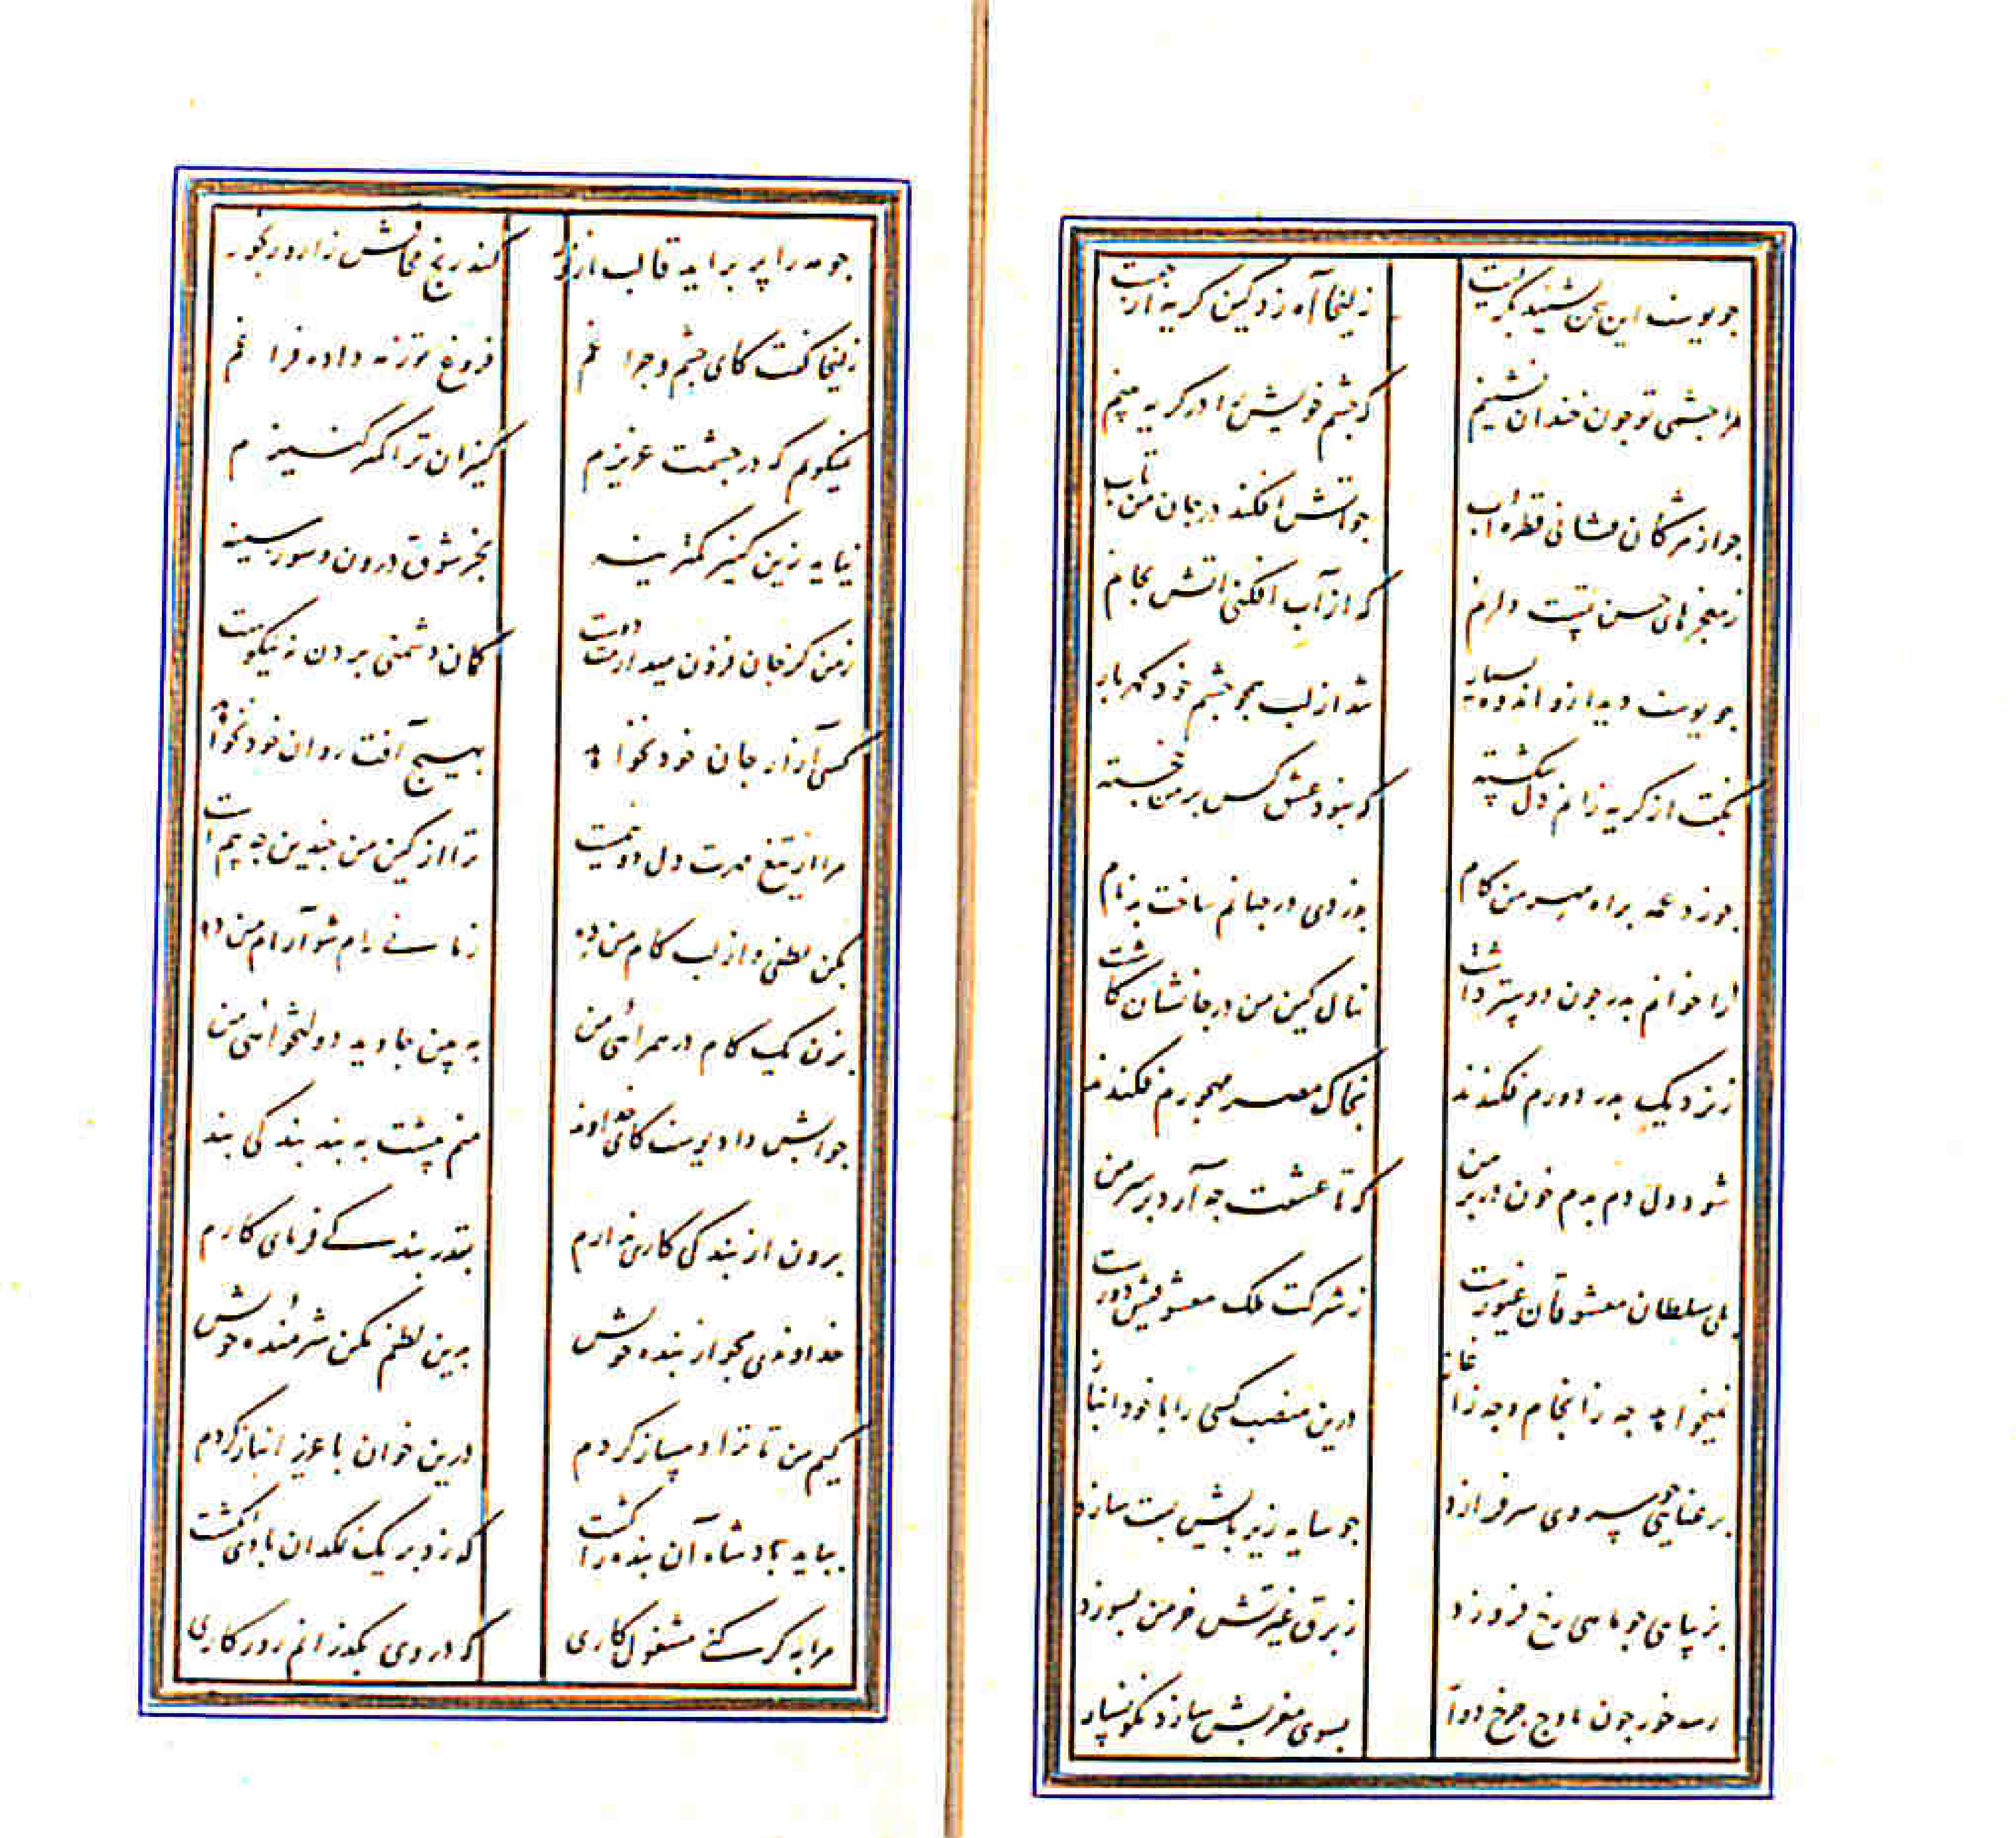 جو یوسف این سخن بشنید بگریست
زلیخا آه زد کین گریه از چیست
مرا جشمی تو جون خندان نشینم
که جشم خویش را در گریه بینم
جو از مژگان فشانی قطره آب
جو آتش افکند در جان من تاب
ز معجزهای حسن تست دانم
که از آب افکنی آتش بجانم
جو یوسف دید ازو اندوه بسیار
شد از لب همجو جشم خود کهربار
بگفت از کریه زانم دل شکسته
که نبود عشق کس بر من خجسته
جو زد عمه براه مهر من کام
بدزدی در جهانم ساخت بدنام
ز اخوانم بدر جون دوستر داشت
نهال کین من در جانشان کاشت
ز نزدیک بدر دورم فکندند
بخاک مصر مهجورم فکندند
شود دل دم بدم خون در بر من
که تا عشقت جه آرد بر سر من
بلی سلطان معشوقان غیورست
ز شرکت ملک معشوقیش دورست
نمیخواهد جه ز انجام و جه ز آغاز
درین منصب کسی را با خود انباز
برعنایی جو سروی سر فرازد
جو سایه زیر پایش پست سازد
بزیبایی جو ماهی رخ فروزد
ز برق غیرتش خرمن بسوزد
رسد خور جون باوج جرخ دوار
بسوی مغربش سازد نکونسار
جو مه را پر براید قالب از نور
کند رنج محاقش زار و رنجور
زلیخا کفت کای جشم و جراغم
فروغ تو ز مه داده فراغم
نمیکویم که در جشمت عزیزم
کنیزان ترا کمتر کنیزم
نیاید زین کنیز کمترینه
بجز شوق درون و سوز سینه
ز من کز جان فزون میدارمت دوست
کمان دشمنی بردن نه نیکوست
کسی آزار جان خود نخواهد
بهیج آفت روان خود نخواهد
مرا از تیغ مهرت دل دو نیمست
ترا از کین من جندین جه بیم است
بکن لطفی و از لب کام من ده
زمانی رام شو آرام من ده
بزن یک کام در همراهی من
ببین جاوید دولتخواهی من
جوابش داد یوسف کای خداوند
منم پیشت به بند بندکی بند
برون از بندکی کاری ندارم
بقدر بندکی فرمای کارم
خداوندی مجو از بنده خویش
بدین لطفم مکن شرمنده خویش
کیم من تا ترا دمساز کردم
درین خوان با عزیز انباز کردم
بباید بادشاه آن بنده را کشت
که زد بر یک نمکدان با وی انکشت
مرا به کر کنی مشغول کاری
که در وی بکذرانم روزکاری